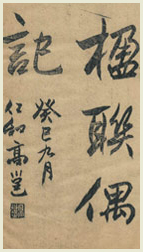 楹聯偶
記
癸巳九月
仁和高邕